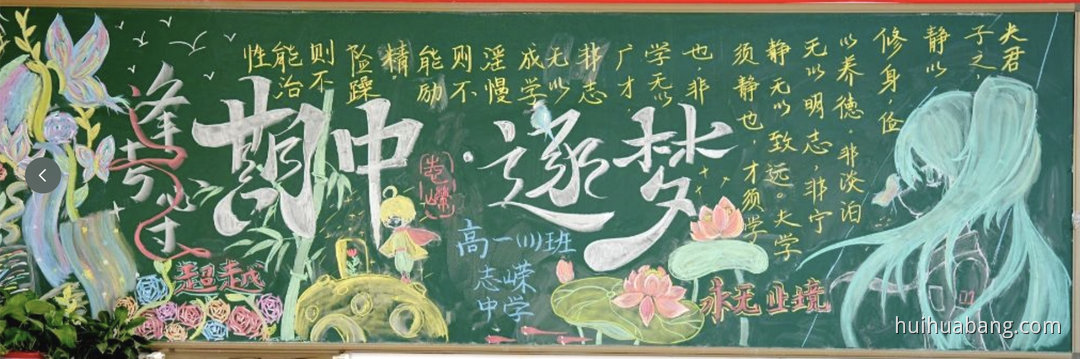 夫君
子之,
静以
修身,俭
以养德.非淡泊
无以明志.非宁
静无以致远。夫学
须静也,才须学
也非
学无以
广才
非志
无以
成学
淫慢
则不
能励
精
险躁
则不
能治
性
期中·逐梦
志嵘
逢考必过
超越
高一(11)班
志嵘
中学
永无止境
huihuabang.com